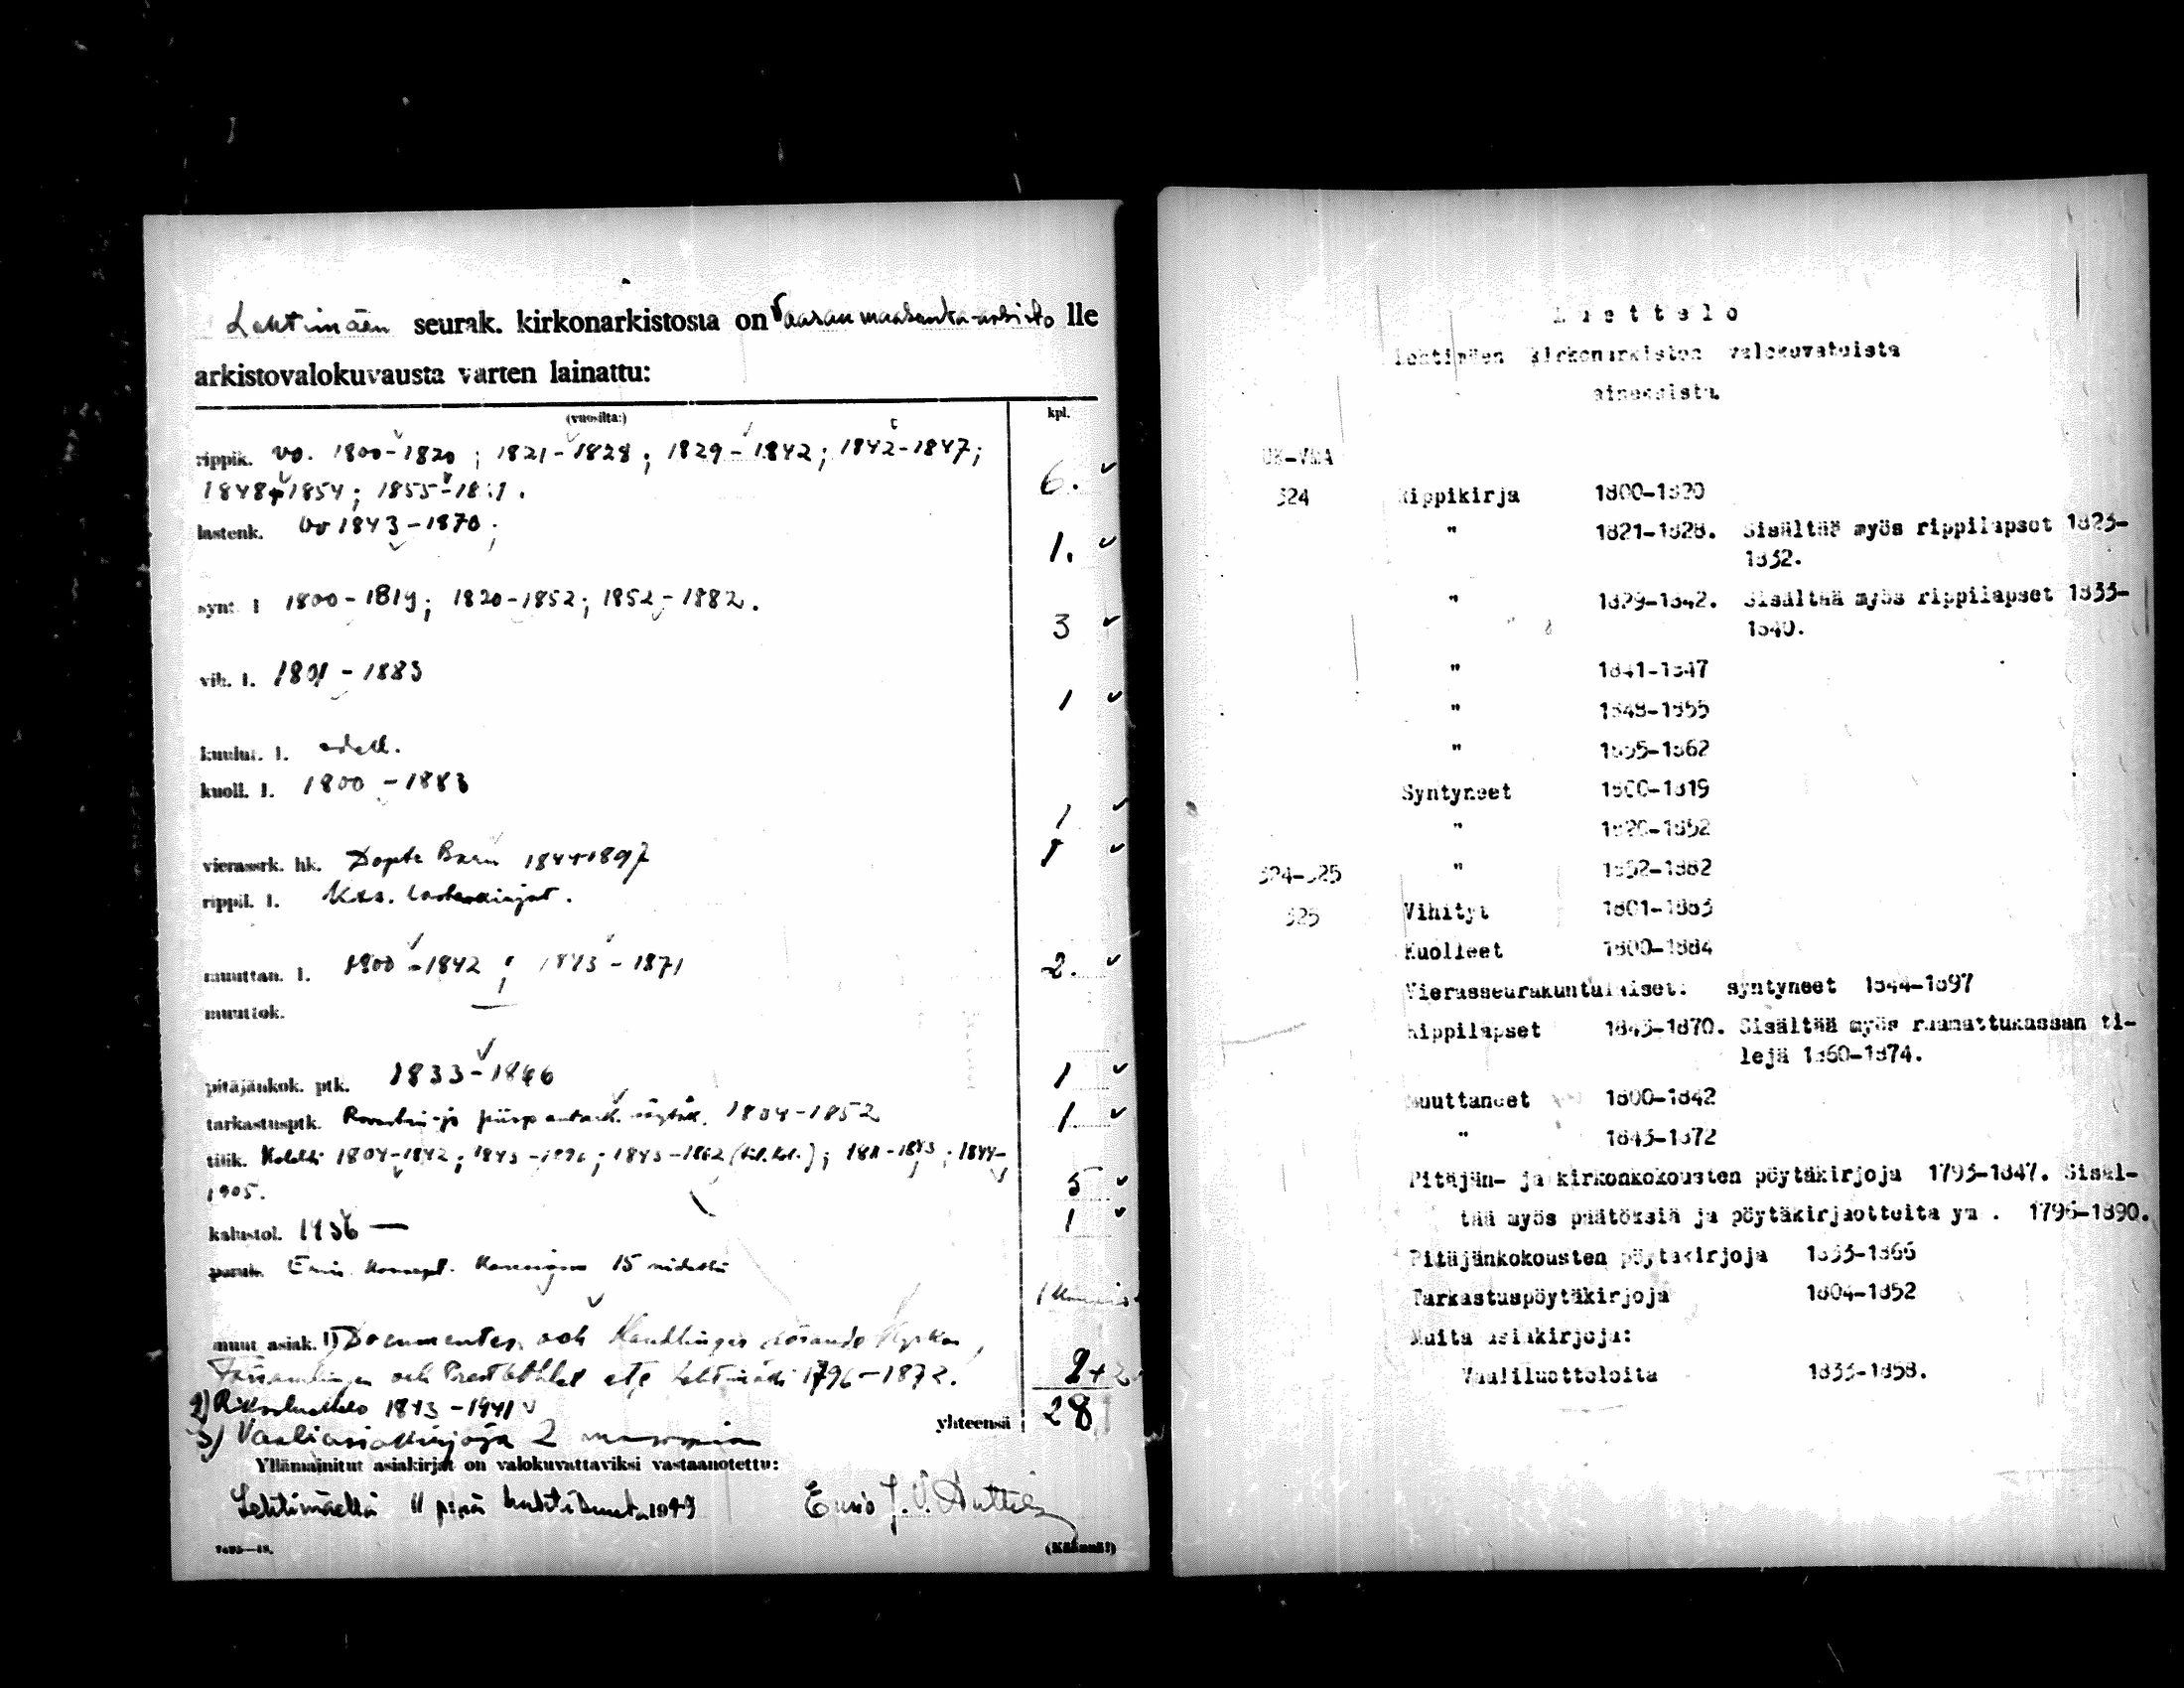 Lehtimäen seurak. kirkonarkistosta on Vaasan maakunta-arkisto lle
arkistovalokuvausta varten lainattu:
(vuosilta:) kpl.
rippik. vv. 1800-1820; 1821-1828; 1829-1842; 1842-1847;
1848-1854; 1855-1861. 6.
lastenk. vv 1843-1870; 1.
synt. l 1800-1819; 1820-1852; 1852-1882. 3
vih. l. 1801-1883 1
kuulut. l. edell.
kuoll. l. 1800-1883 1
vierassrk. hk. Döpte Barn 1844-1897 1
rippil. l. Kts. lastenkirjat.
muuttan. l. 1800-1842; 1843-1871 2.
muuttok. —
pitäjänkok. ptk. 1833-1846 1
tarkastusptk. Rovastin- ja piispantark. pöytäk. 1804-1852 1
tilik. 1804-1842; 1843-1896; 1843-1862; 1844-
1905. 5
kalustol. 1936 — 1
15 nidettä
muut asiak. 1) Documenter och Handlingar rörande Kyrkan,
Församlingen och Prestbohlet 1796-1872. 2+2
2) Rikosluettelo 1843-1941
3) Vaaliasiakirjoja 2 yhteensä 28
Yllämainitut asiakirjat on valokuvattaviksi vastaanotettu:
Lehtimäellä 11 p:nä huhtikuuta 1949 J. V. Anttila
(Käännä!)
Luettelo
Lehtimäen kirkonarkiston valokuvatuista
aineksista.
UK-VMA
324 Rippikirja 1800-1820
" 1821-1828. Sisältää myös rippilapset 1823-
1832.
" 1829-1842. Sisältää myös rippilapset 1833-
1840.
" 1841-1847
" 1848-1855
" 1855-1862
Syntyneet 1800-1819
" 1820-1852
324-325 " 1852-1882
325 Vihityt 1801-1883
Kuolleet 1800-1884
Vierasseurakuntalaiset: syntyneet 1844-1897
Rippilapset 1843-1870. Sisältää myös raamattukassan ti-
lejä 1860-1874.
Muuttaneet 1800-1842
" 1843-1872
Pitäjän- ja kirkonkokousten pöytäkirjoja 1793-1847. Sisäl-
tää myös päätöksiä ja pöytäkirjaotteita ym . 1796-1890.
Pitäjänkokousten pöytäkirjoja 1833-1866
Tarkastuspöytäkirjoja 1804-1852
Muita asiakirjoja:
Vaaliluetteloita 1833-1858.